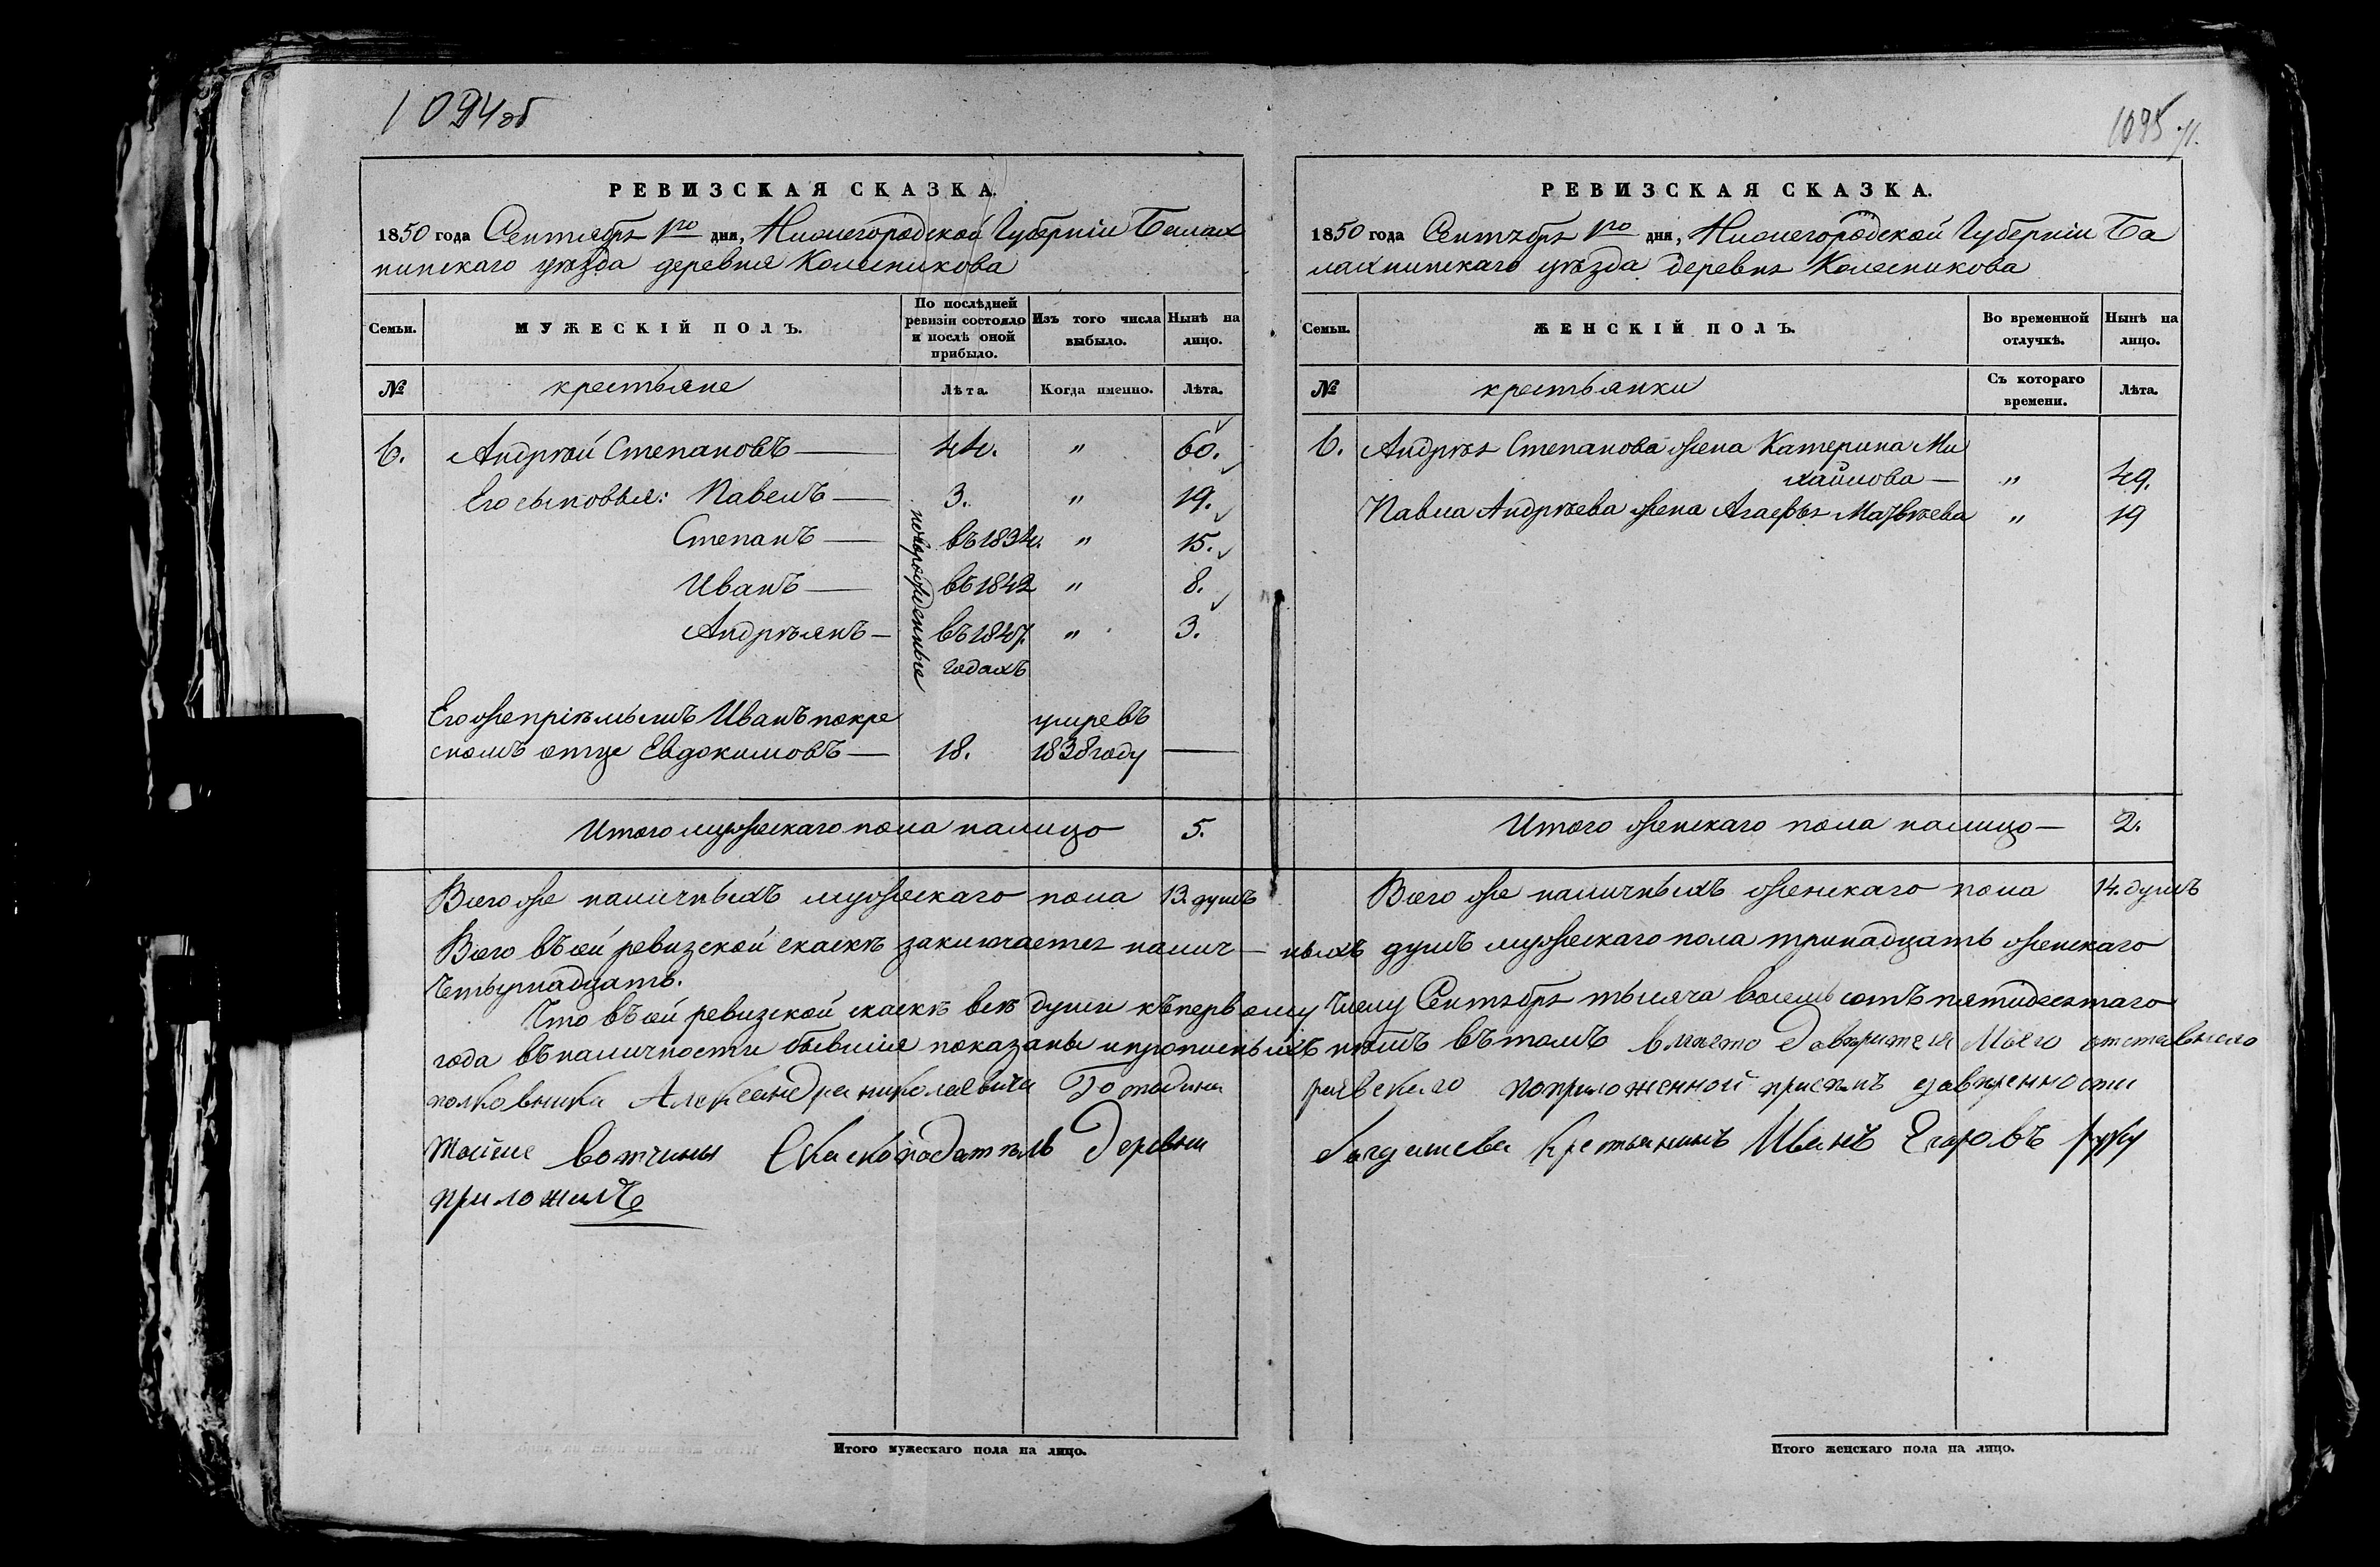 1094об
РЕВИЗСКАЯ СКАЗКА.
1850 года Сентября 1го дня, Нижегородской Губернiи Балах
нинскаго уѣзда деревня Колесникова
Семьи.
МУЖЕСКIЙ ПОЛЪ.
По послѣдней ревизiи состояло и послѣ оной прибыло.
Изъ того числа выбыло.
Нынѣ на лицо.
№
крестьяне
Лѣта.
Когда именно.
Лѣта.
6. Андрѣй Степановъ — 44. " 60.
Его сыновья: Павелъ — 3. " 19.
новорожденные
Степанъ — въ 1834. " 15.
Иванъ — въ 1842 " 8.
Андрѣянъ — въ 1847. " 3.
годахъ
Его же прiѣмышъ Иванъ покре умревъ
сномъ отце Евдокимовъ — 18. 1838 году —
Итого мужескаго пола налицо 5.
Всего же наличныхъ мужескаго пола 13. душъ
1095
РЕВИЗСКАЯ СКАЗКА.
1850 года Сентября 1го дня, Нижегородской Губернiи Ба
лахнинскаго уѣзда деревня Колесникова
Семьи.
ЖЕНСКIЙ ПОЛЪ.
Во временной отлучкѣ.
Нынѣ на лицо.
№
крестьянки
Съ котораго времени.
Лѣта.
6. Андрѣя Степанова жена Катерина Ми
хайлова — " 49.
Павла Андрѣева жена Агафья Матвѣева " 19
Итого женскаго пола налицо — 2.
Всего же наличныхъ женскаго пола 14. душъ
Всего въ сей ревизской скаскѣ заключается налич — ныхъ душъ мужескаго пола тринадцать женскаго
четырнадцать.
Что въ сей ревизской скаскѣ всѣ души къ первому числу Сентября тысяча восемь сотъ пятидесятаго
года въ наличности бывшiя показаны и прописныхъ нѣтъ въ томъ вмѣсто доверителя Моего отставнаго
полковника Александра николаевича по приложенной при семъ доверенности
тойже вотчины Скаскоподатель Деревни крестьянинъ Иванъ Егоровъ руку
приложилъ
Итого мужескаго пола на лицо.
Итого женскаго пола на лицо.